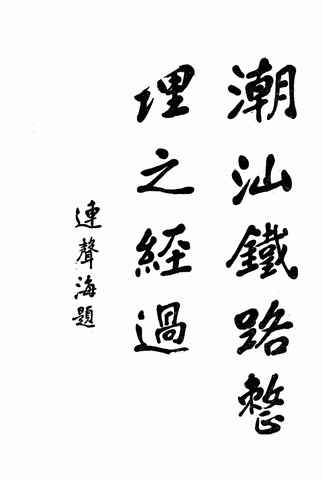 潮汕鐵路整
理之經過
連聲海題